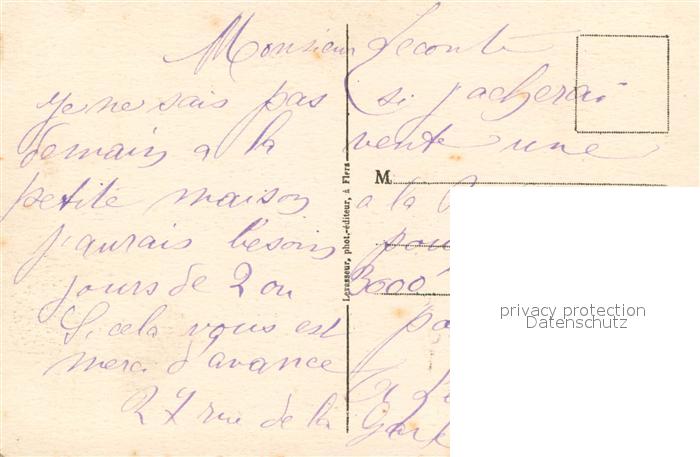 Monsieur Leconte
je ne sais pas si j'acherai
demain a la vente une
petite maison a la
j'aurais besoin pou
jours de 2 ou 3000
Si cela vous est po
merci d'avance
27 rue de la Gare
M.
Levasseur, phot.-éditeur, à Flers
privacy protection
Datenschutz